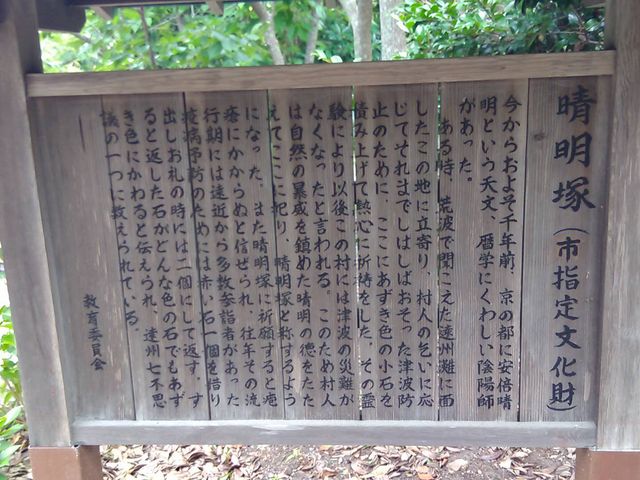 晴明塚（市指定文化財）
今からおよそ千年前、京の都に安倍晴
明という天文、暦学にくわしい陰陽師
があった。
ある時、荒波で聞こえた遠州灘に面
したこの地に立寄り、村人の乞いに応
じてそれまでしばしばおそった津波防
止のために、ここにあずき色の小石を
積み上げて熱心に祈祷をした。その霊
験により以後この村には津波の災難が
なくなったと言われる。このため村人
は自然の暴威を鎮めた晴明の徳をたた
えてここに祀り、晴明塚と称するよう
になった。また晴明塚に祈願すると疱
瘡にかからぬと信ぜられ、往年その流
行期には遠近から多数参詣者があった
疫病予防のためには赤い石一個を借り
出しお札の時には二個にして返す。す
ると返した石がどんな色の石でもあず
き色にかわると伝えられ、遠州七不思
議の一つに数えられている。
教育委員会